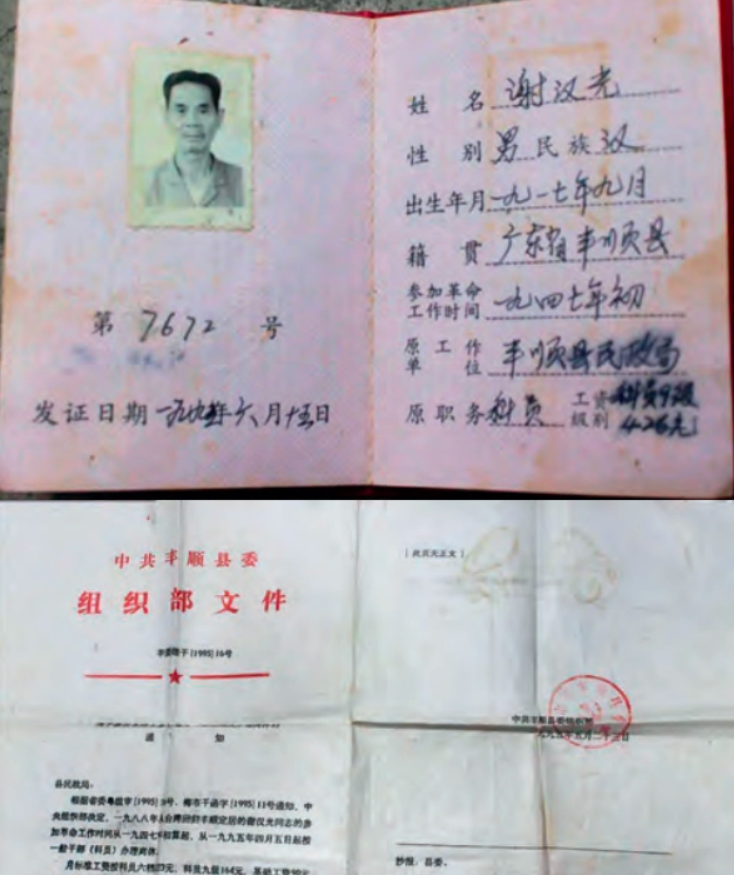 第 7672 号
发证日期 一九九五年六月十五日
姓 名 谢汉光
性 别 男 民 族 汉
出生年月 一九一七年九月
籍 贯 广东省丰顺县
参加革命
工作时间 一九四七年初
原 工 作
单 位 丰顺县民政局
原职务 科员 工资
级别
中共丰顺县委
组织部文件
[1995]16号
通 知
县民政局:
根据省委粤组字[1995]3号、梅市干函字[1995]11号通知,中
央组织部决定,一九八八年从台湾回归丰顺定居的谢汉光同志的参
加革命工作时间从一九四七年初算起,从一九九五年四月五日起按
一般干部(科员)办理离休。
(此页无正文)
中共丰顺县委组织部
抄报:县委。